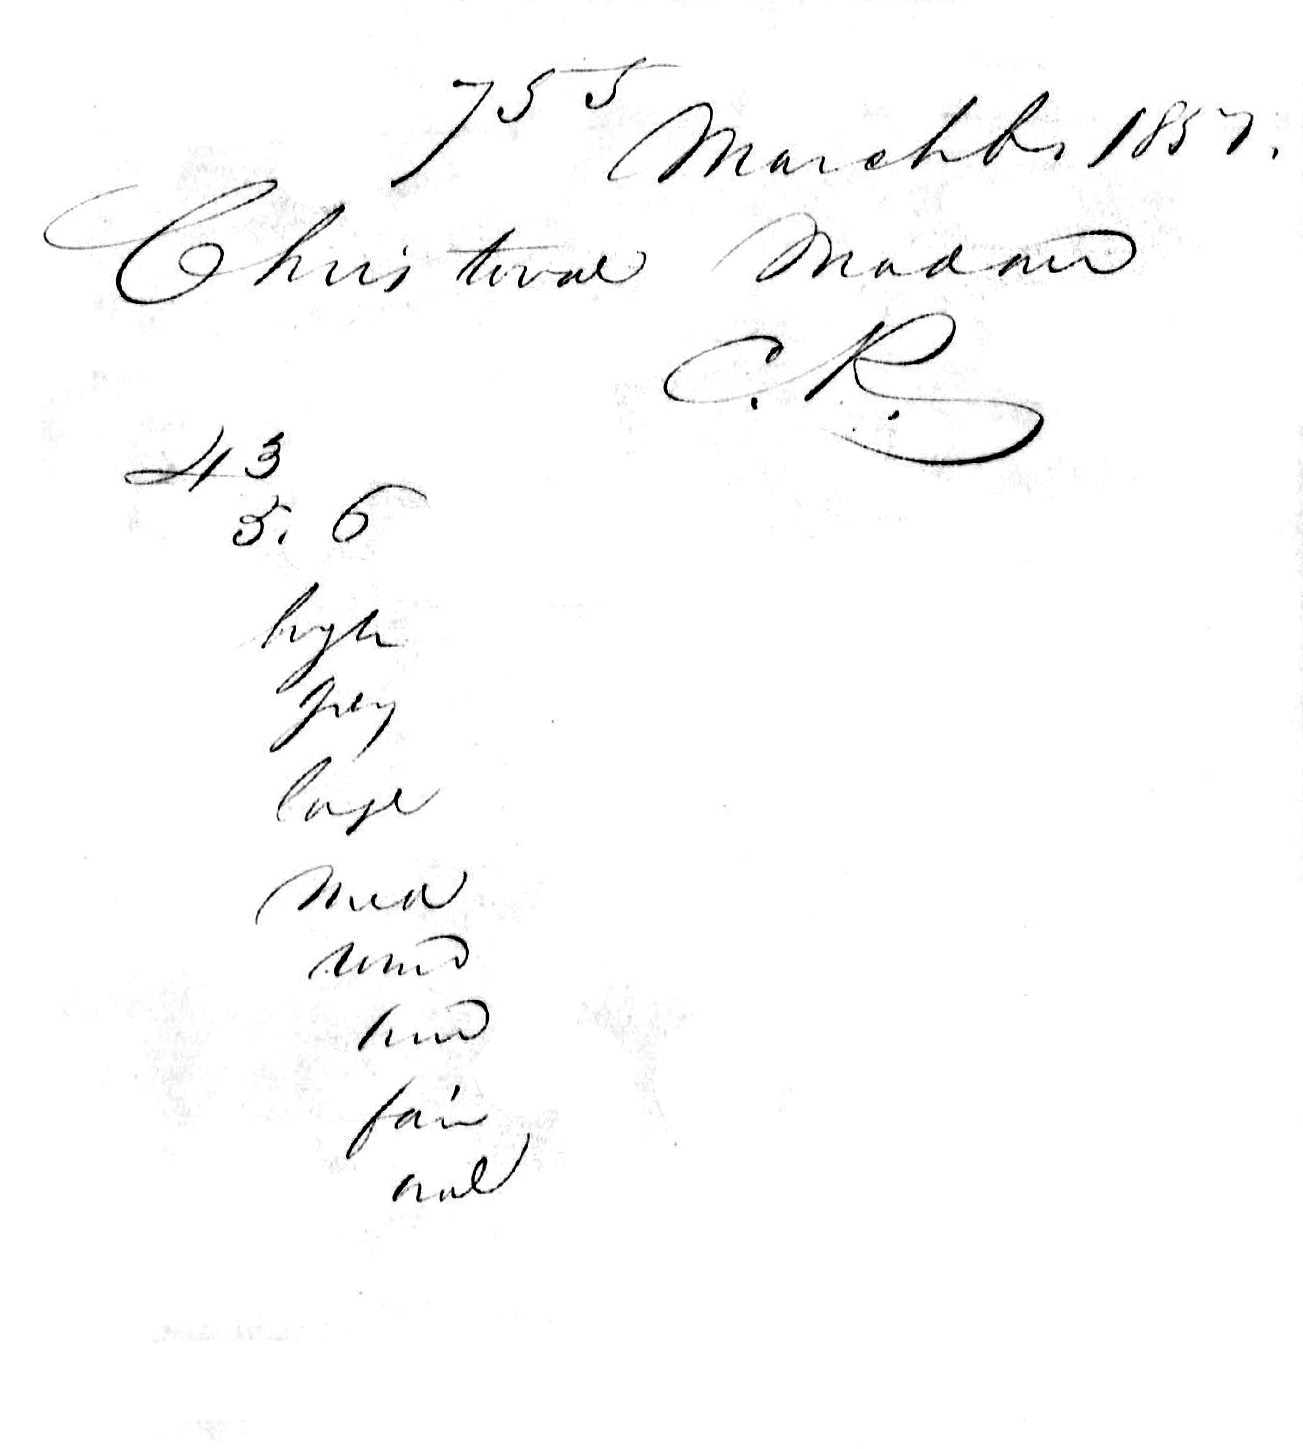 755
March 6, 1857.
Christoval Madan
C. R.
43
5. 6
high
grey
large
med
round
fair
oval